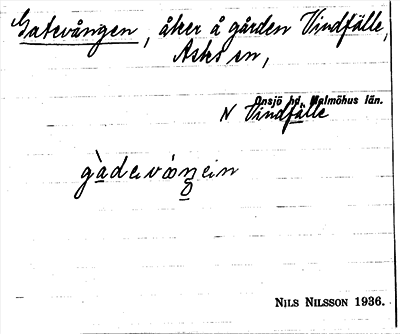 Gatevången, åker å gården Vindfälle,
Asks sn,
Onsjö hd, Malmöhus län.
N Vindfälle
NILS NILSSON 1936.